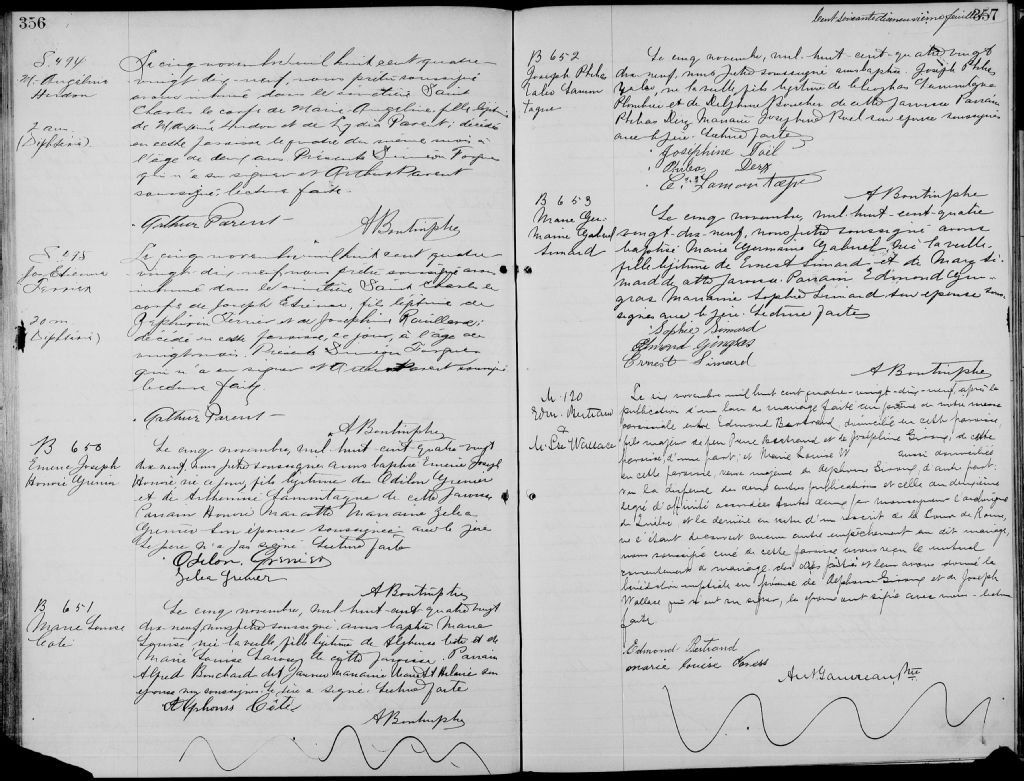 356
S. 494
M. Angelina
Hudon
2 ans
(Diphtérie)
Le cinq novembre mil huit cent quatre
vingt dix-neuf, nous prêtre soussigné
avons inhumé dans le cimetière Saint
Charles le corps de Marie Angelina, fille légitime
de Hudon et de Lydia Parent; décédée
en cette paroisse le quatre du même mois à
l'âge de deux ans. Présents Siméon
qui n'a su signer et Arthur Parent
soussigné, lecture faite.
Arthur Parent
A Bontemps Ptre
S. 495
Jos. Etienne
Terrien
20 m.
(Diphtérie)
Le cinq novembre mil huit cent quatre
vingt dix neuf, nous prêtre soussigné avons
inhumé dans le cimetière Saint Charles le
corps de Joseph Etienne, fils légitime de
Terrien et de Joséphine
décédé en cette paroisse, ce jour, à l'âge de
vingt mois. Présents Siméon
qui n'a su signer et Arthur Parent soussigné
lecture faite.
Arthur Parent
B 650
Joseph
Honoré Grenier
Le cinq novembre, mil huit cent quatre vingt
dix neuf, nous prêtre soussigné avons baptisé Joseph
Honoré, né ce jour, fils légitime de Odilon Grenier
et de Lamontagne de cette paroisse
Parrain Honoré Marcotte Marraine Zelia
Grenier son épouse soussignée avec le père
Le père n'a pas signé lecture faite
Odilon Grenier
Zelia Grenier
B 651
Marie Louise
Coté
Le cinq novembre, mil huit cent quatre vingt
dix neuf, nous prêtre soussigné avons baptisé Marie
Louise, née la veille, fille légitime de Alphonse Coté et de
Marie Louise de cette paroisse. Parrain
Alfred Marraine son
épouse non soussignés. Le père a signé. Lecture faite
Alphonse Côté
357
Cent soixante dix neuvième feuillet
B 652
Joseph Philias
Lamon
tagne
Le cinq novembre, mil huit cent quatre vingt
dix neuf, nous prêtre soussigné avons baptisé Joseph Philias
né la veille, fils légitime de Cléophas Lamontagne
et de Delphine Boucher de cette paroisse Parrain
Philias Marraine Joséphine son épouse soussignés
avec le père. Lecture faite
Josephine
Philias
C. Lamontagne
B 653
Marie Ger-
maine Gabriel
Simard
Le cinq novembre, mil huit cent quatre
vingt-dix-neuf, nous prêtre soussigné avons
baptisé Marie Germaine Gabriel, née la veille
fille légitime de Ernest Simard et de Mary Si-
mard de cette paroisse. Parrain Edmond Gin-
gras Marraine Sophie Simard son épouse sous-
signés avec le père. Lecture faite
Sophie Simard
Edmond Gingras
Ernest Simard
M. 120
Edm. Bertrand
&
M. L. Wallace
Le six novembre mil huit cent quatre-vingt-dix-neuf, après la
publication d'un ban de mariage faite au prône de notre messe
paroissiale entre Edmond Bertrand, domicilié en cette paroisse,
fils majeur de feu Pierre Bertrand et de Joséphine Giroux, de cette
paroisse, d'une part; et Marie Louise W aussi domiciliée
en cette paroisse, veuve majeure de Alphonse Giroux, d'autre part;
vu la dispense des deux autres publications et celle au deuxième
degré d'affinité accordées toutes deux par monseigneur l'archevêque
de Québec et la dernière en vertu d'un rescrit de la Cour de Rome,
ne s'étant découvert aucun autre empêchement au dit mariage,
nous soussigné curé de cette paroisse avons reçu le mutuel
consentement à mariage des dites parties et leur avons donné la
bénédiction nuptiale en présence de Alphonse Giroux et de Joseph
Wallace qui n'ont su signer, les époux ont signé avec nous. Lecture
faite.
Edmond Bertrand
marie louise
Ant Gauvreau Ptre